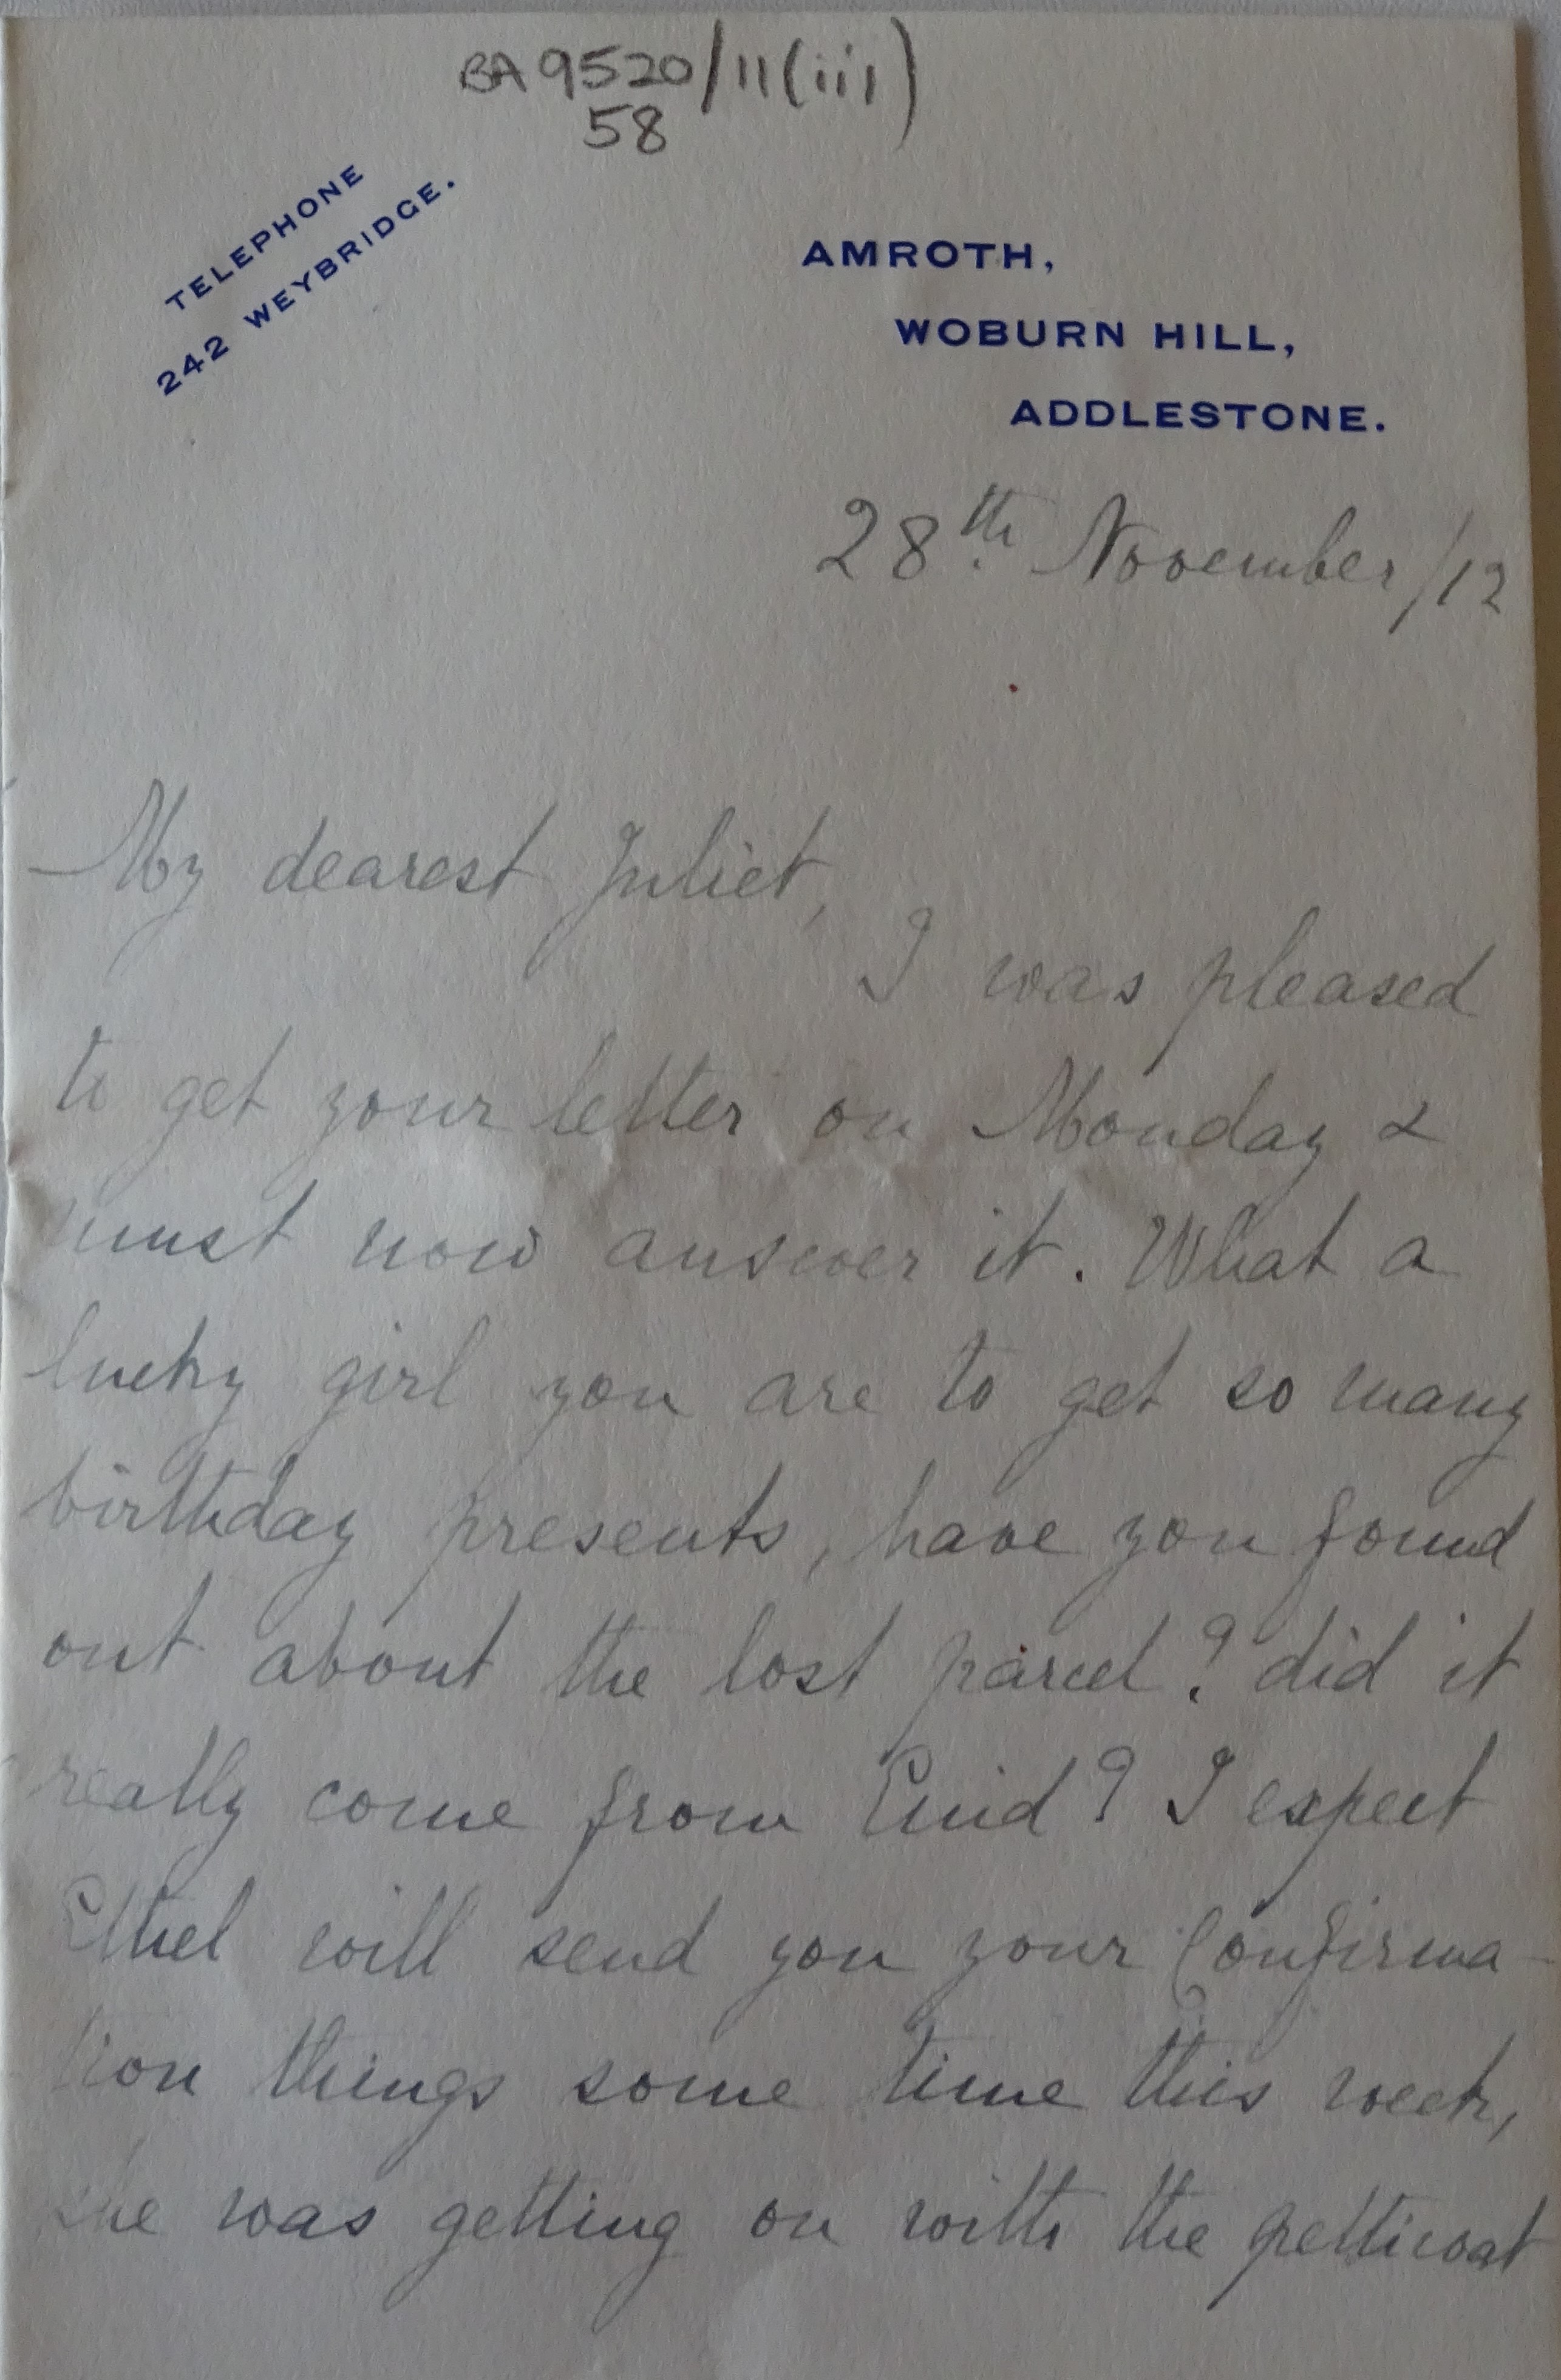 BA 9520/11(iii)
58
TELEPHONE
242 WEYBRIDGE.
AMROTH,
WOBURN HILL,
ADDLESTONE.
28th November/12
My dearest Juliet,
I was pleased
to get your letter on Monday &
must now answer it. What a
lucky girl you are to get so many
birthday presents, have you found
out about the lost parcel? did it
really come from Enid? I expect
Ethel will send you your Confirma-
tion things some time this week,
she was getting on with the petticoat